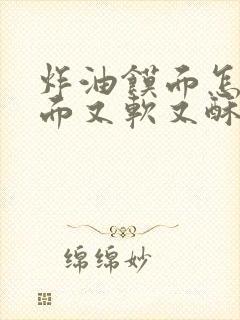 炸油饃而怎
而又軟又酥
绵绵妙